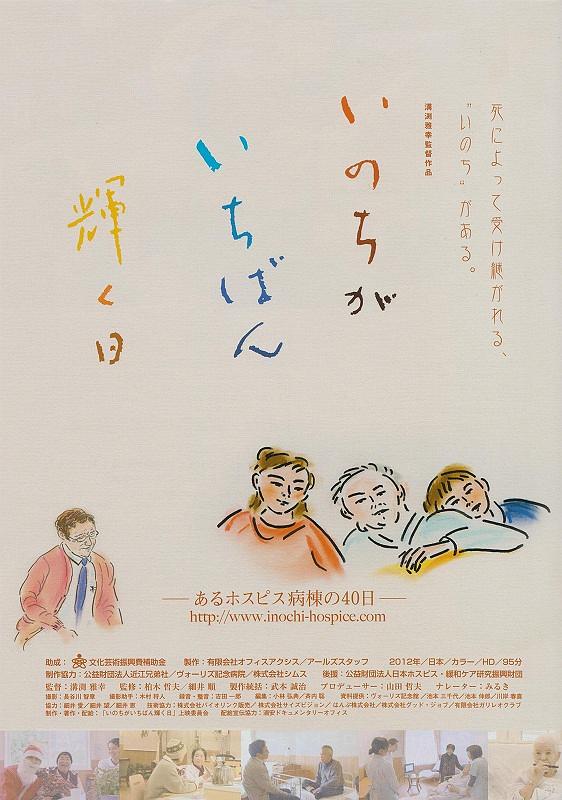 死によって受け継がれる、
“いのち”がある。
溝渕雅幸監督作品
いのちが
いちばん
輝く日
── あるホスピス病棟の40日 ──
http://www.inochi-hospice.com
助成： 文化芸術振興費補助金　製作：有限会社オフィスアクシス／アールズスタッフ　2012年／日本／カラー／HD／95分
制作協力：公益財団法人近江兄弟社／ヴォーリズ記念病院／株式会社シムス　後援：公益財団法人日本ホスピス・緩和ケア研究振興財団
監督：溝渕 雅幸　監修：柏木 哲夫／細井 順　製作統括：武本 誠治　プロデューサー：山田 哲夫　ナレーター：みるき
撮影：長谷川 智章　撮影助手：木村 将人　録音・整音：吉田 一郎　編集：小林 弘典／斉内 聡　資料提供：ヴォーリズ記念館／池本 三千代／池本 伸郎／川岸 春喜
協力：細井 愛／細井 望／細井 恵　技術協力：株式会社バイオリンク販売／株式会社サイズビジョン／はんぷ株式会社／株式会社グッド・ジョブ／有限会社ガリレオクラブ
制作・著作・配給：「いのちがいちばん輝く日」上映委員会　配給宣伝協力：浦安ドキュメンタリーオフィス